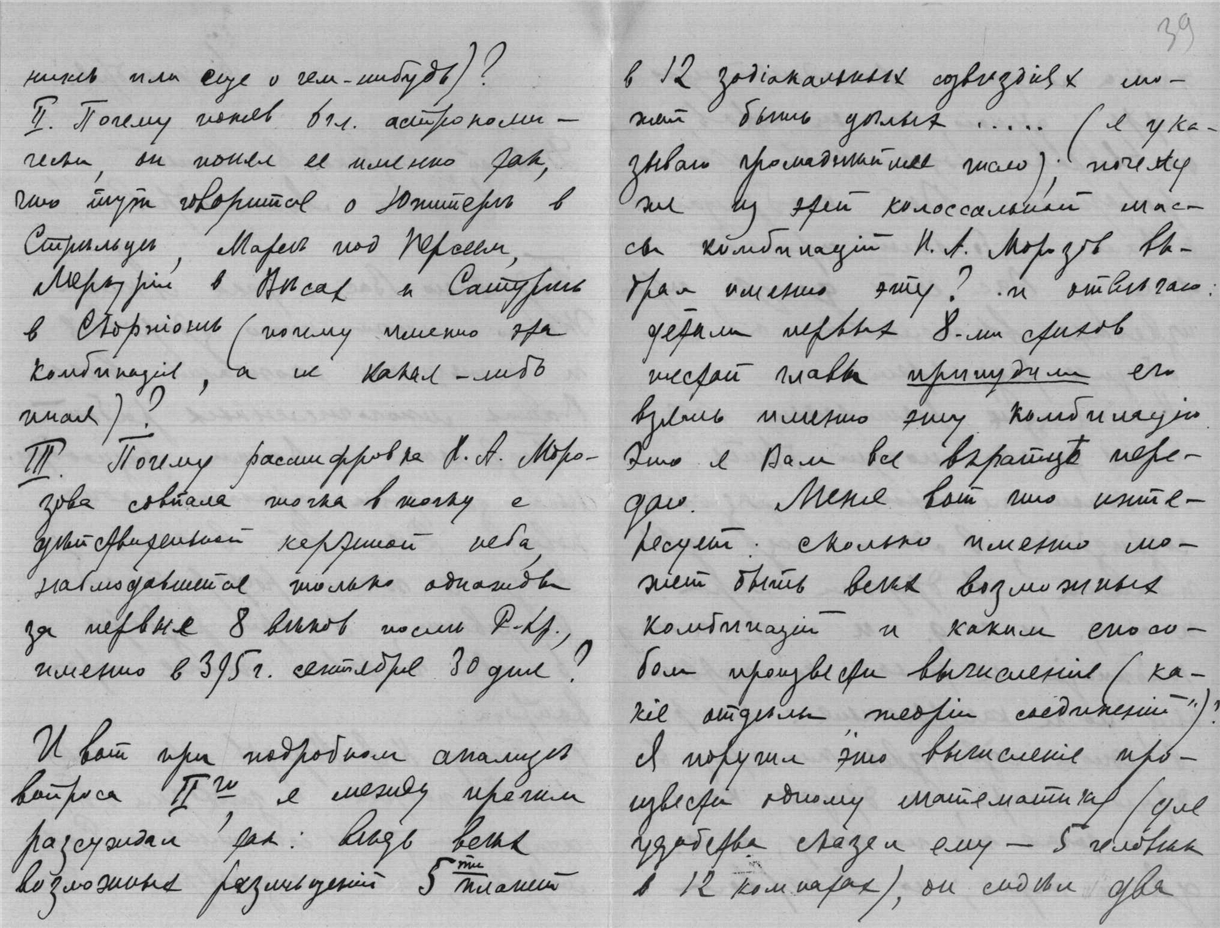 39
нихъ или еще о чем-нибудь)?
II. Почему понявъ 6 гл. астрономи-
чески, он понял ее именно так,
что тут говорится о Юпитерѣ в
Стрѣльцѣ, Марсѣ под Персеем,
Меркуріи в Вѣсах и Сатурнѣ
в Скорпіонѣ (почему именно эта
комбинація, а не какая-либо
иная)?
III. Почему расшифровка Н. А. Моро-
зова совпала точка в точку с
дѣйствительной картиной неба,
наблюдавшейся только однажды
за первые 8 вѣков послѣ Р.Хр.,
именно в 395 г. сентября 30 дня?
И вот при подробном анализѣ
вопроса II го я между прочим
разсуждал так: вѣдь всѣх
возможных размѣщеній 5 ти планет
в 12 зодіакальных созвѣздіях мо-
жет быть цѣлых ..... (я ука-
зываю громаднѣйшее число); почему
же из этой колоссальной мас-
сы комбинацій Н. А. Морозов вы-
брал именно эту? и отвѣчаю:
детали первых 8-ми стихов
шестой главы принудили его
взять именно эту комбинацію.
Это я Вам все вкратцѣ пере-
даю. Меня вот что инте-
ресует: сколько именно мо-
жет быть всѣх возможных
комбинацій и каким спосо-
бом произвести вычисленіе (ка-
кіе отдѣлы „теоріи соединеній")?
Я поручил это вычисленіе про-
извести одному математику (для
удобства сказал ему — 5 человѣк
в 12 комнатах), он сидѣл два